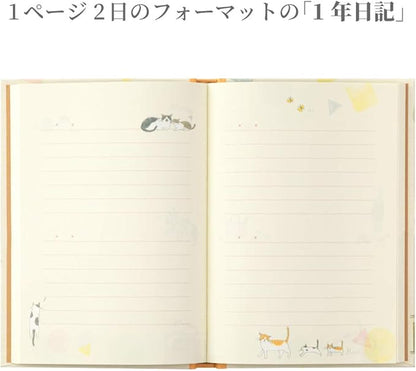 1ページ2日のフォーマットの「1年日記」